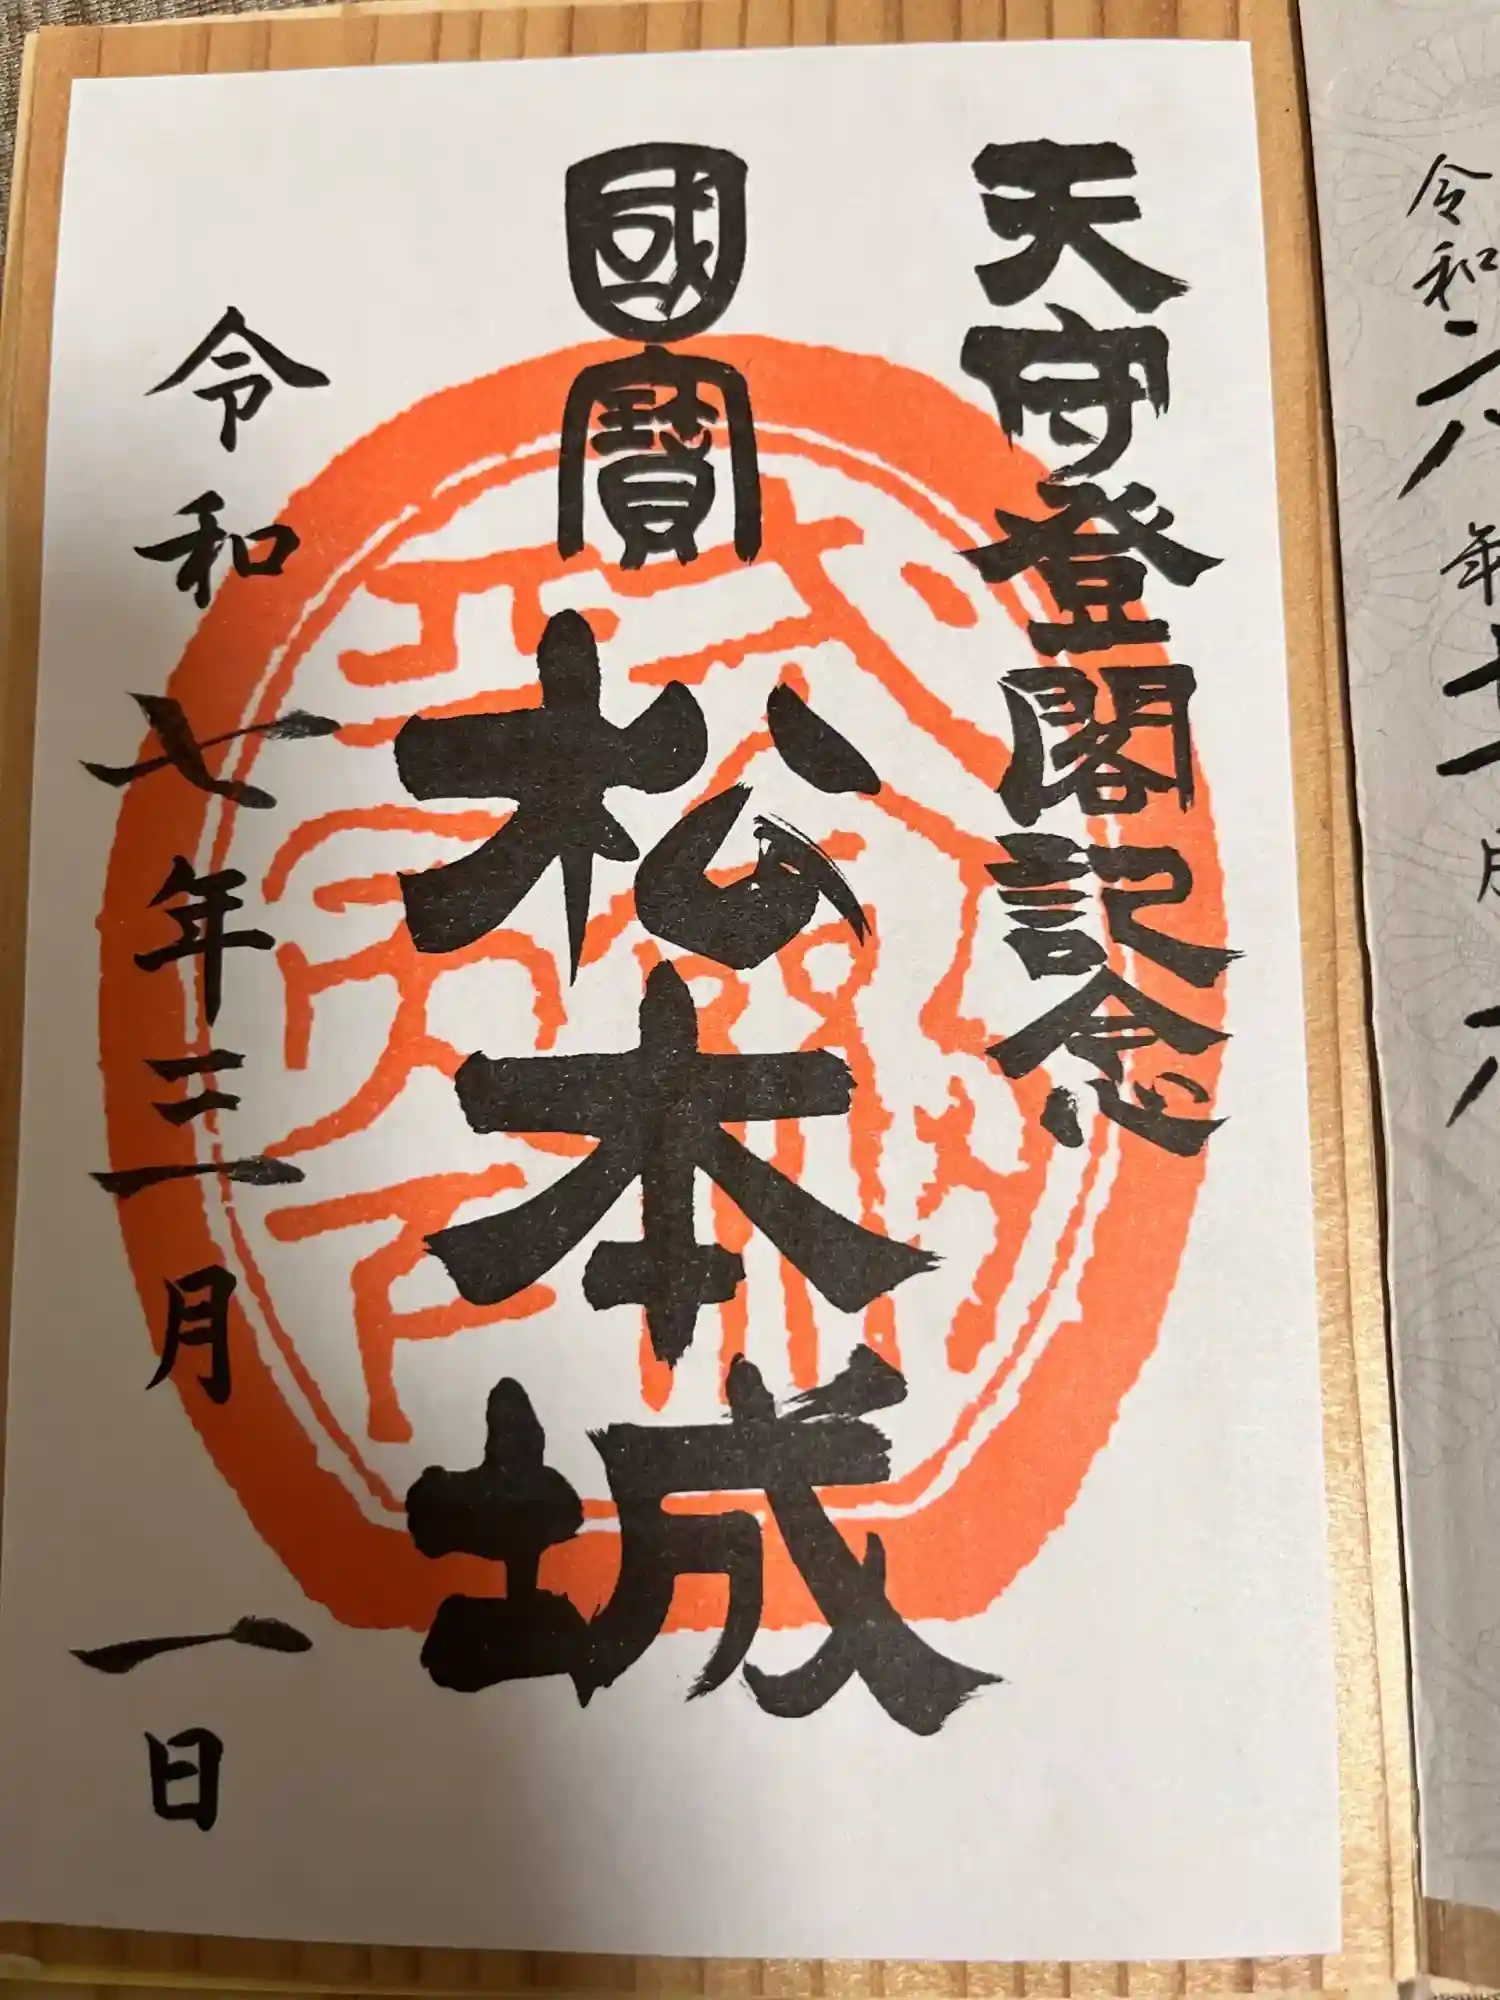 令和六年
天守登閣記念
國寶 松本城
令和七年三月一日